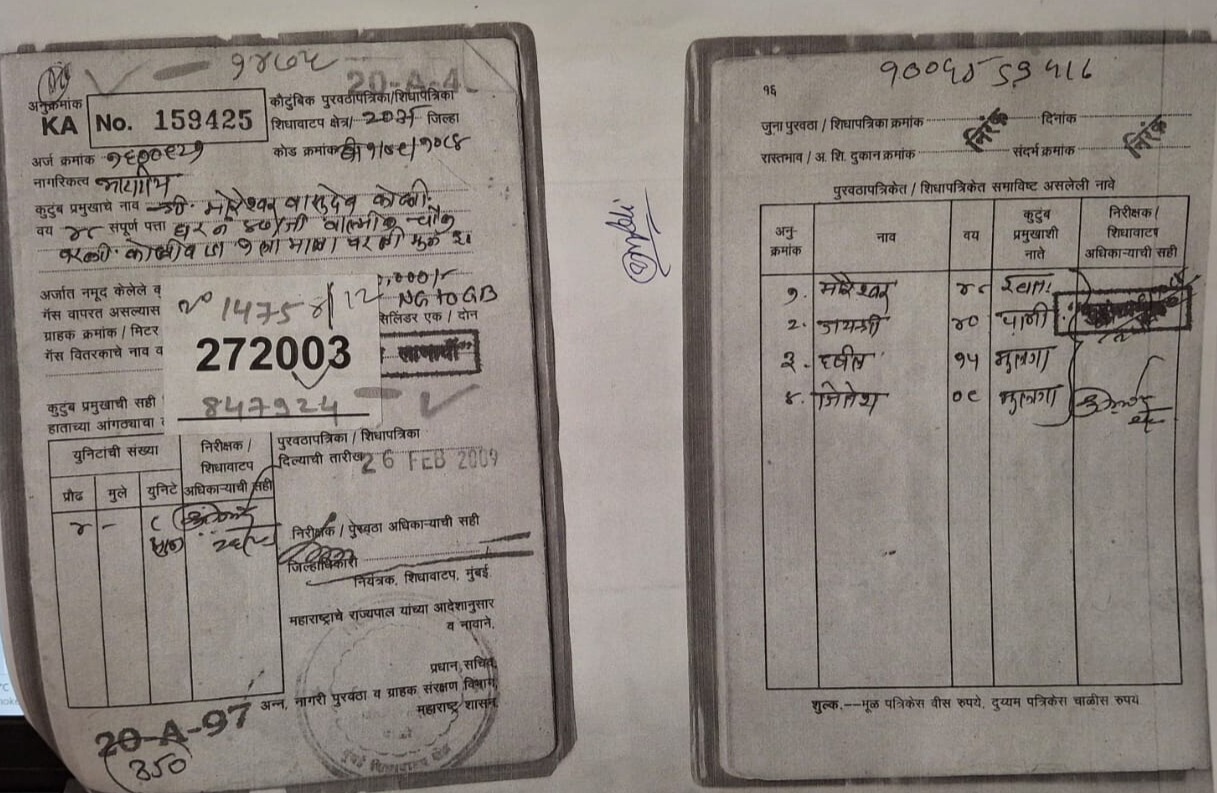 १४७५
20-A-4
अनुक्रमांक
KA No. 159425
कौटुंबिक पुरवठापत्रिका/शिधापत्रिका
शिधावाटप क्षेत्र/ २०अ/- जिल्हा
अर्ज क्रमांक १६००८२१
कोड क्रमांक
नागरिकत्व भारतीय
कुटुंब प्रमुखाचे नाव श्री. मोरेश्वर वासुदेव कोळी.
वय ४८ संपूर्ण पत्ता घर नं ४७/जी वाल्मीक चौक
वरळी कोळीवाडा १ला माळा वरळी मुंबई ३०
अर्जात नमूद केलेले
गॅस वापरत असल्यास NG to GB
ग्राहक क्रमांक / मिटर सिलिंडर एक / दोन
गॅस वितरकाचे नाव व
1475
272003
847924
कुटुंब प्रमुखाची सही
हाताच्या आंगठ्याचा
युनिटांची संख्या
निरीक्षक /
शिधावाटप
अधिकाऱ्याची सही
प्रौढ मुले युनिटे
४ - ८
पुरवठापत्रिका / शिधापत्रिका
दिल्याची तारीख 26 FEB 2009
निरीक्षक / पुरवठा अधिकाऱ्याची सही
जिल्हाधिकारी
नियंत्रक, शिधावाटप, मुंबई.
महाराष्ट्राचे राज्यपाल यांच्या आदेशानुसार
व नावाने,
प्रधान सचिव,
अन्न, नागरी पुरवठा व ग्राहक संरक्षण विभाग,
महाराष्ट्र शासन.
20-A-97
350
१६
जुना पुरवठा / शिधापत्रिका क्रमांक निरंक दिनांक निरंक
रास्तभाव / अ. शि. दुकान क्रमांक संदर्भ क्रमांक
पुरवठापत्रिकेत / शिधापत्रिकेत समाविष्ट असलेली नावे
अनु-
क्रमांक
नाव
वय
कुटुंब
प्रमुखाशी
नाते
निरीक्षक /
शिधावाटप
अधिकाऱ्याची सही
१. मोरेश्वर ४८ स्वतः
२. जयश्री ४० पत्नी
३. १५ मुलगा
४. जितेश ०८ मुलगा
शुल्क.--मूळ पत्रिकेस वीस रुपये, दुय्यम पत्रिकेस चाळीस रुपये